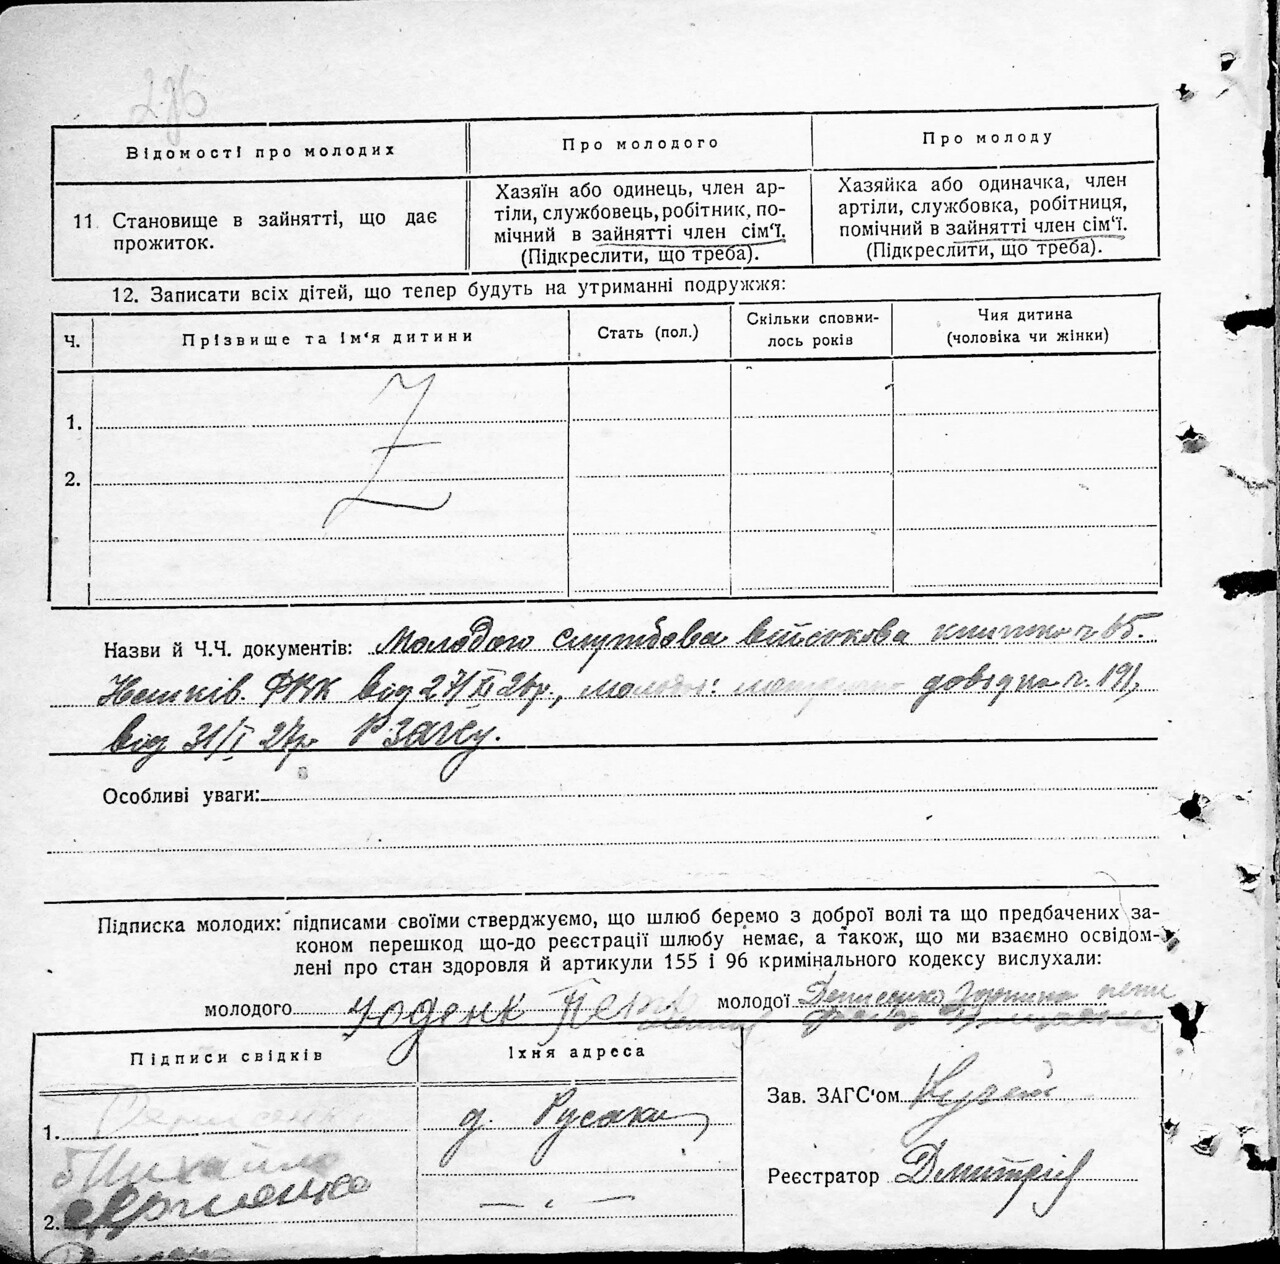 Відомості про молодих
Про молодого
Про молоду
11 Становище в зайнятті, що дає
прожиток.
Хазяїн або одинець, член ар-
тіли, службовець, робітник, по-
мічний в зайнятті член сім'ї.
(Підкреслити, що треба).
Хазяйка або одиначка, член
артіли, службовка, робітниця,
помічний в зайнятті член сім'ї.
(Підкреслити, що треба).
12. Записати всіх дітей, що тепер будуть на утриманні подружжя:
Ч.
Прізвище та ім'я дитини
Стать (пол.)
Скільки сповни-
лось років
Чия дитина
(чоловіка чи жінки)
1.
2.
Назви й Ч.Ч. документів: Молодого службова військова
від 27/XI 26р., довідка ч. 191,
від 31/I 27р. РЗАГСу.
Особливі уваги:
Підписка молодих: підписами своїми стверджуємо, що шлюб беремо з доброї волі та що предбачених за-
коном перешкод що-до реєстрації шлюбу немає, а також, що ми взаємно освідом-
лені про стан здоровля й артикули 155 і 96 кримінального кодексу вислухали:
молодого
молодої
Підписи свідків
Їхня адреса
1.
д. Русаки
Михайло
2.
— " —
Зав. ЗАГС'ом
Реєстратор Дмитрів